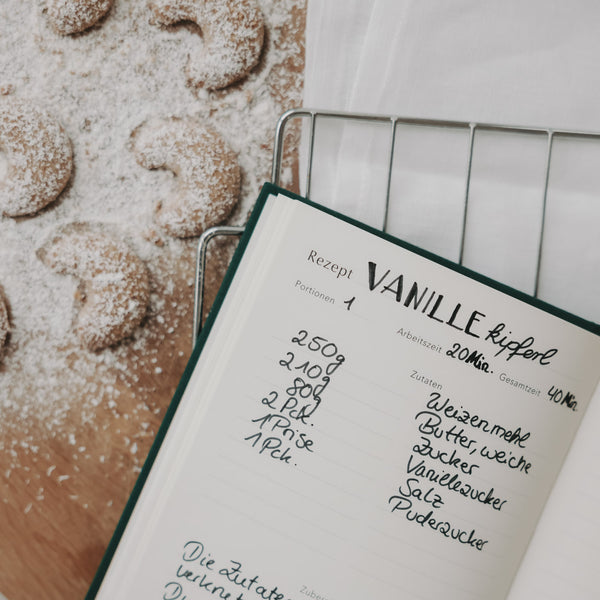 Rezept VANILLE kipferl
Portionen 1
Arbeitszeit 20 Min. Gesamtzeit 40 Min.
Zutaten
250g Weizenmehl
210g Butter, weiche
80g Zucker
2 Pck. Vanillezucker
1 Prise Salz
1 Pck. Puderzucker
Die Zutate